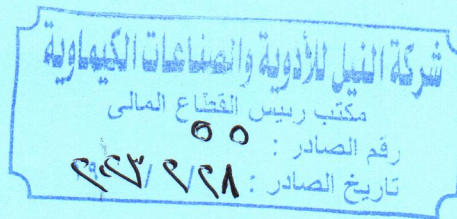 شركة النيل للأدوية والصناعات الكيماوية
مكتب رئيس القطاع المالى
رقم الصادر : ٥٥
تاريخ الصادر : ٢٠٢٣/٢/٢٨